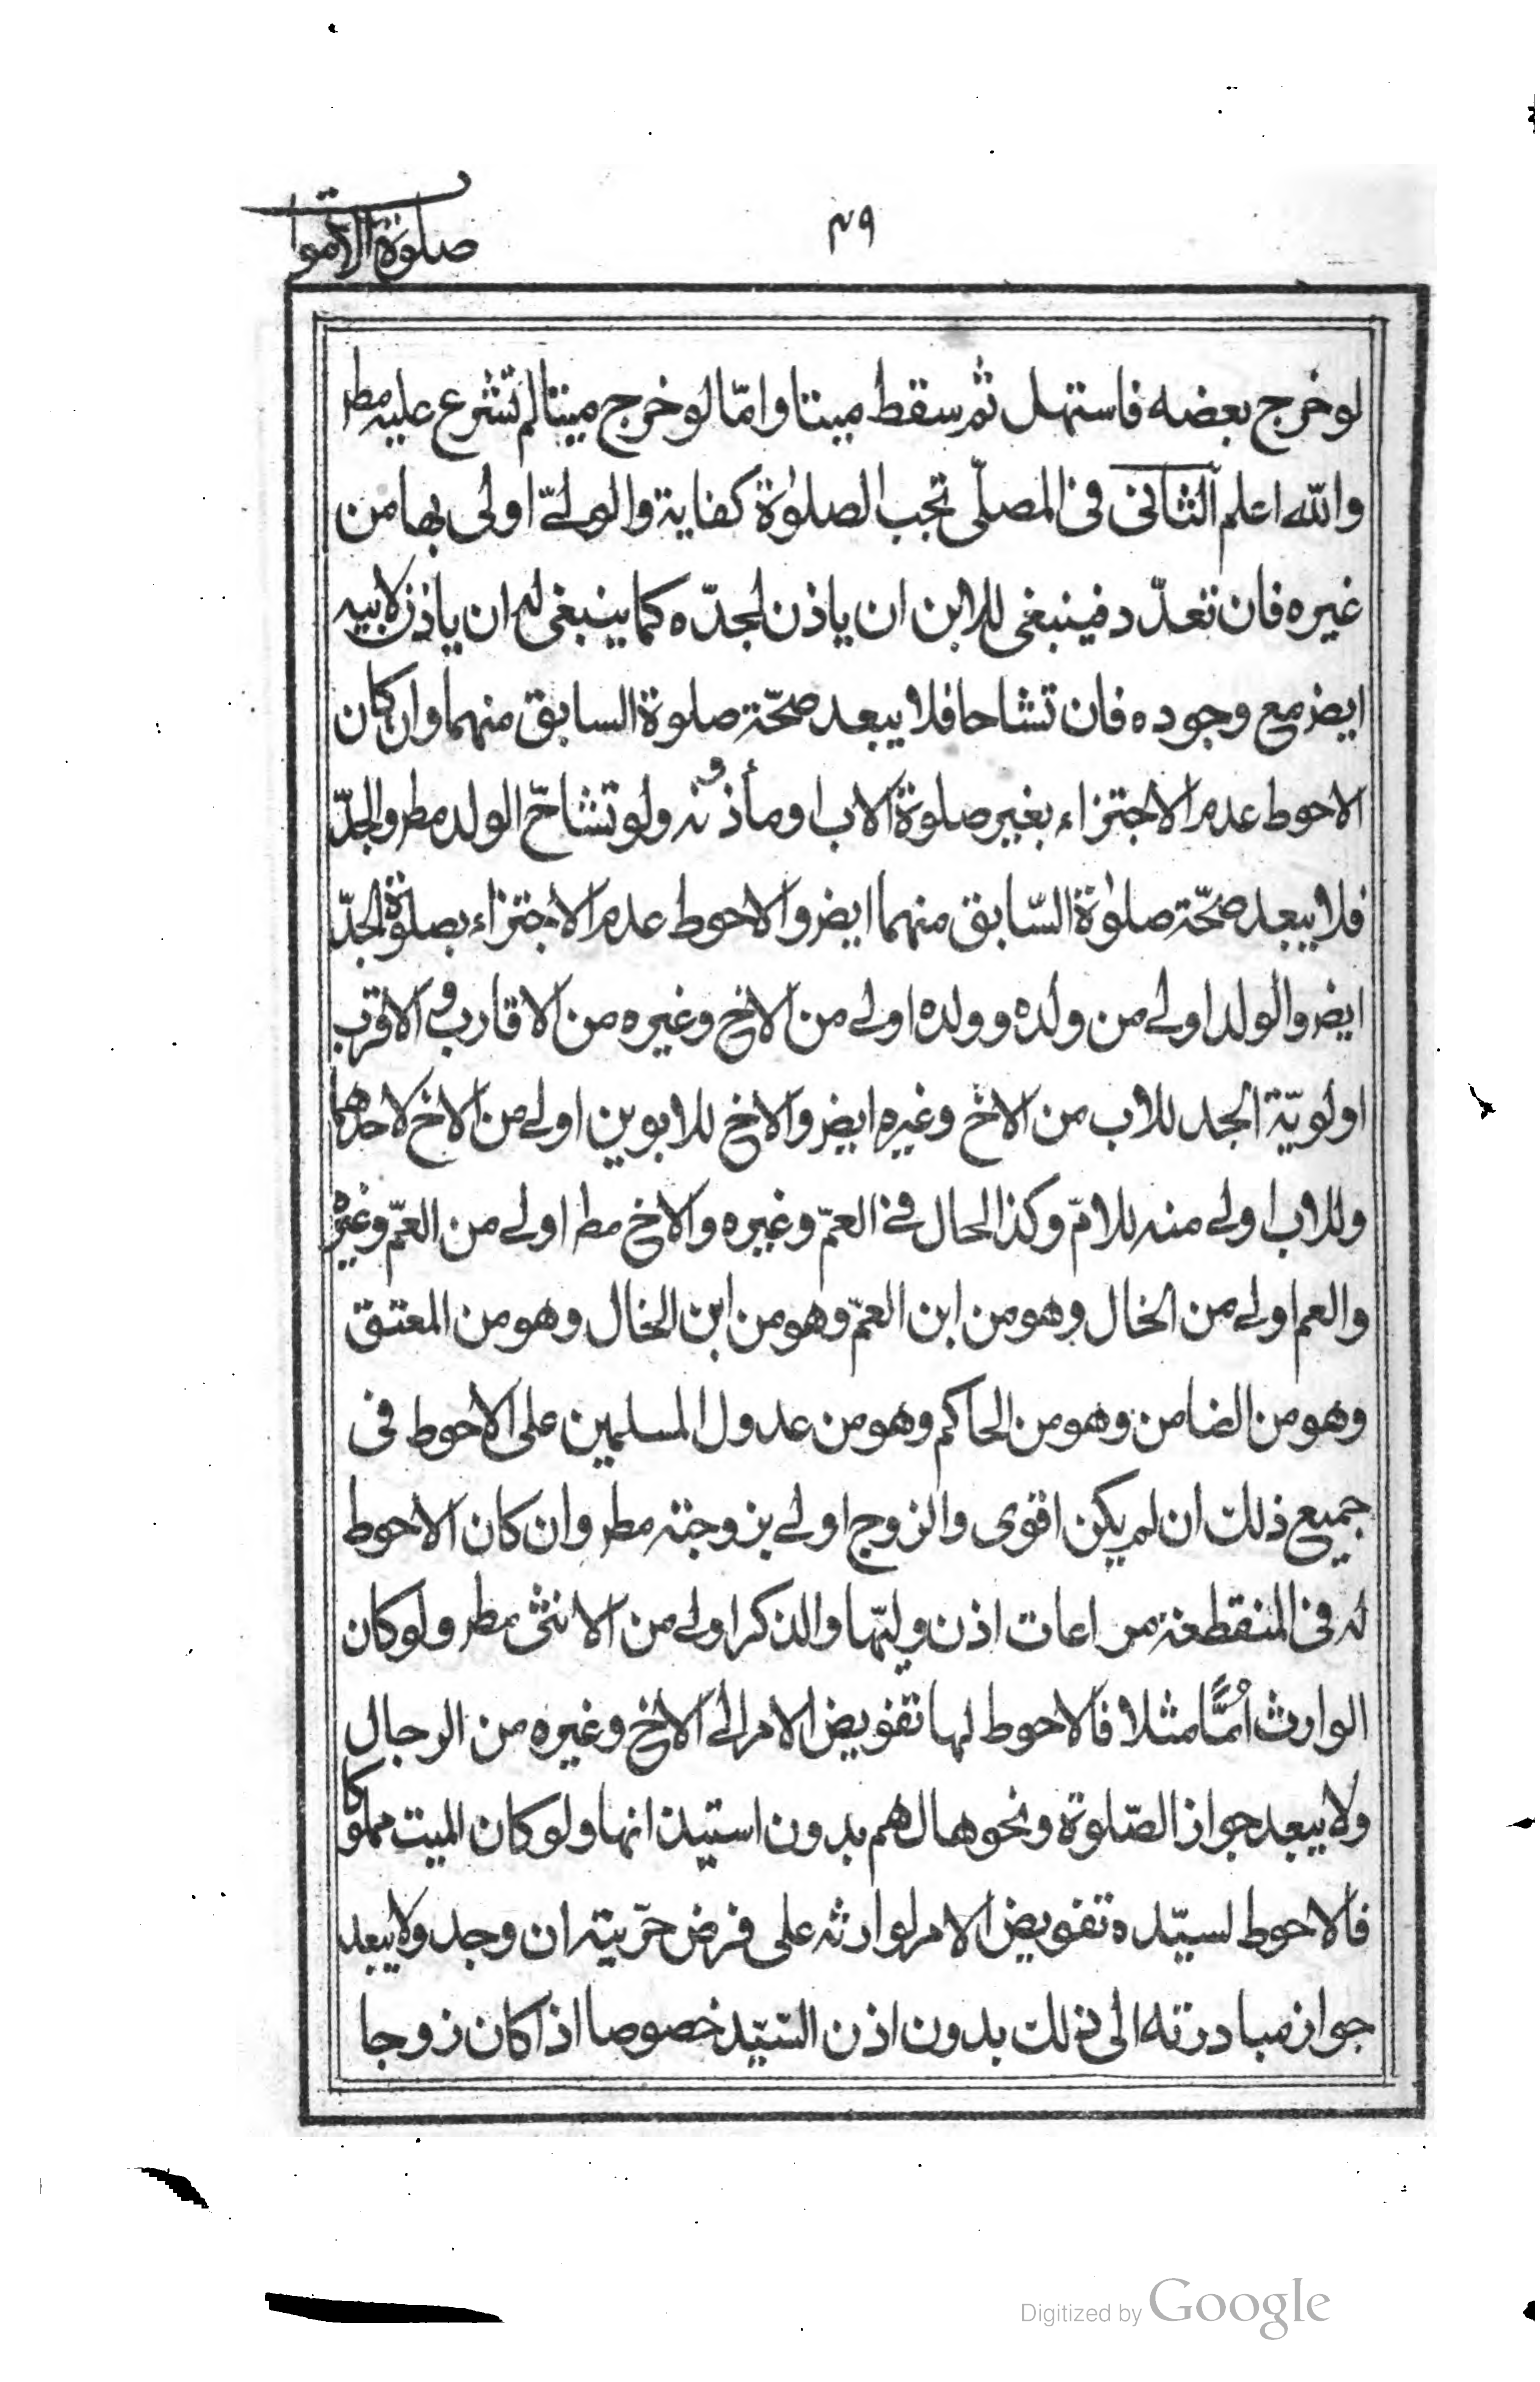 ٤٩
صلوة الاموات
لو خرج بعضه فاستهل ثم سقط ميتا وامّا لو خرج ميتا لم تشرع عليه مطر
والله اعلم الثانى فى المصلّى تجب الصلوٰة كفاية والولىّ اولى بها من
غيره فان تعدّد فينبغى للابن ان ياذن لجدّه كما ينبغى له ان ياذن لابيه
ايضر مع وجوده فان تشاحا فلا يبعد صحّة صلوة السابق منهما وان كان
الاحوط عدم الاجتزاء بغير صلوة الاب او مأذونه ولو تشاحّ الولد مطر والجدّ
فلا يبعد صحّة صلوٰة السّابق منهما ايضر والاحوط عدم الاجتزاء بصلوة الجدّ
ايضر والولد اولى من ولده وولده اولى من الاخ وغيره من الاقارب والاقرب
اولويّة الجد للاب من الاخ وغيره ايضر والاخ للابوين اولى من الاخ لاحدهما
وللاب اولى منه للامّ وكذا الحال فى العمّ وغيره والاخ مطر اولى من العمّ وغيره
والعم اولى من الخال وهو من ابن العمّ وهو من ابن الخال وهو من المعتق
وهو من الضامن وهو من الحاكم وهو من عدول المسلمين على الاحوط فى
جميع ذلك ان لم يكن اقوى والزوج اولى بزوجته مطر وان كان الاحوط
له فى المنقطعة مراعات اذن وليّها والذكر اولى من الانثى مطر ولو كان
الوارث اُمًّا مثلا فالاحوط لها تفويض الامر الى الاخ وغيره من الرجال
ولا يبعد جواز الصّلوة ونحوها لهم بدون استيذانها ولو كان الميت مملوكا
فالاحوط لسيّده تفويض الامر لوارثه على فرض حرّيته ان وجد ولا يبعد
جواز مبادرته الى ذلك بدون اذن السّيّد خصوصا اذا كان زوجا
Digitized by Google